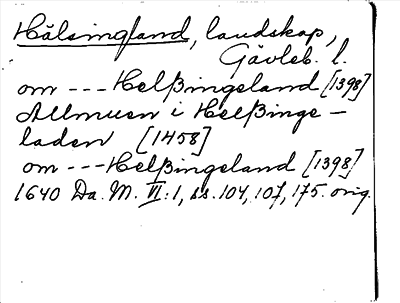 Hälsingland, landskap,
Gävleb. l.
om --- Helßingeland [1398]
Allmuen i Helßinge-
laden [1458]
om --- Helßingeland [1398]
1640 Da. M. VI:1, ss. 104, 107, 175. orig.